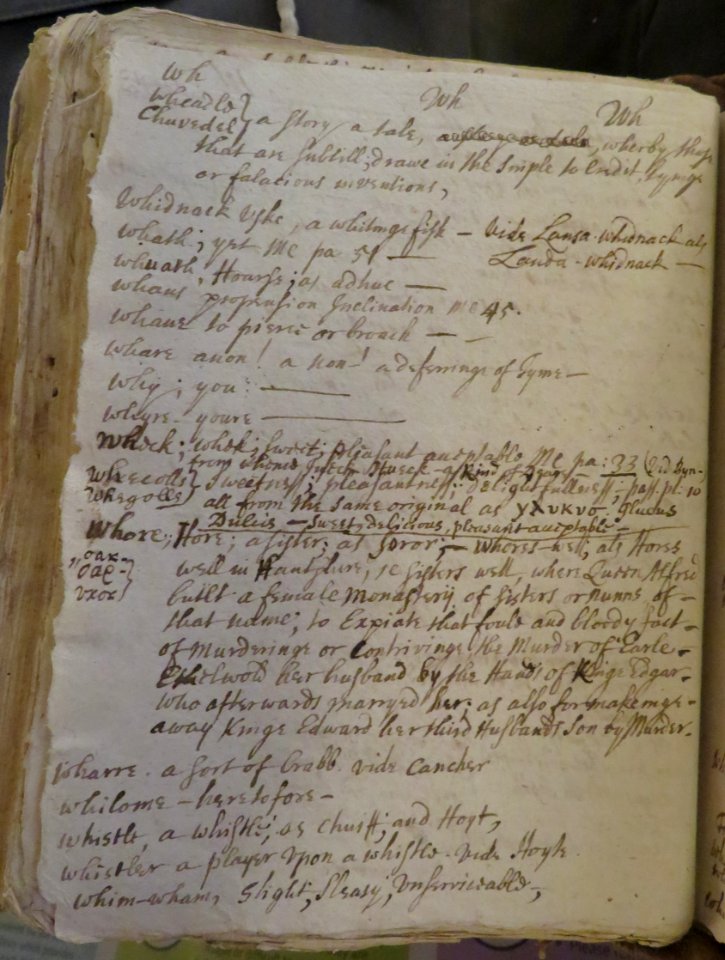 wh Wh Wh
wheadle
Chuvedel } a story a tale, wherby those
that are subtill, drawe in the simple to Credit lyinge
or falacious inventions,
Whidnack Uske, a whitinge fish — vide Lansa-whidnack als
whath; yet Me pa 51 — Landa-whidnack —
whuath, Hoarse; as adhuc —
whans propension Inclination Me 45.
whane to pierce or broach — —
whare anon! a non! a deferringe of Tyme —
why; you: —
whyre youre —
wheck; whek; sweet; pleasant aceptable Me pa: 33
from whome Sweek a kind of
whecolls
whegolls } sweetness; pleasantness; delightfulless; pass. pl: 10
all from the same original as γλυκυσ. glucus
Dulcis — sweet, delicious, pleasant aceptable —
Whore; Hore; a sister; as Soror; — whores-well; als Hores
oax
oap
vxox } well in Hantshire, ie sisters well, where Queen Alfred
built a female Monastery of sisters or nunns of
that name; to Expiate that foule and bloody fact
of Murderinge or Contrivinge the Murder of Earle
Ethelwold her husband by the Hands of Kinge Edgar
who afterwards marryed her; as also for makeinge
away Kinge Edward her third Husbands son by Murder.
wharre. a sort of Crabb vide Cancher
whilome — heretofore —
whistle, a whistle; as Chuist; and Hoyt,
whistler a player upon a whistle. vide Hoyk
whim-wham, slight, sleasy, unserviceable,